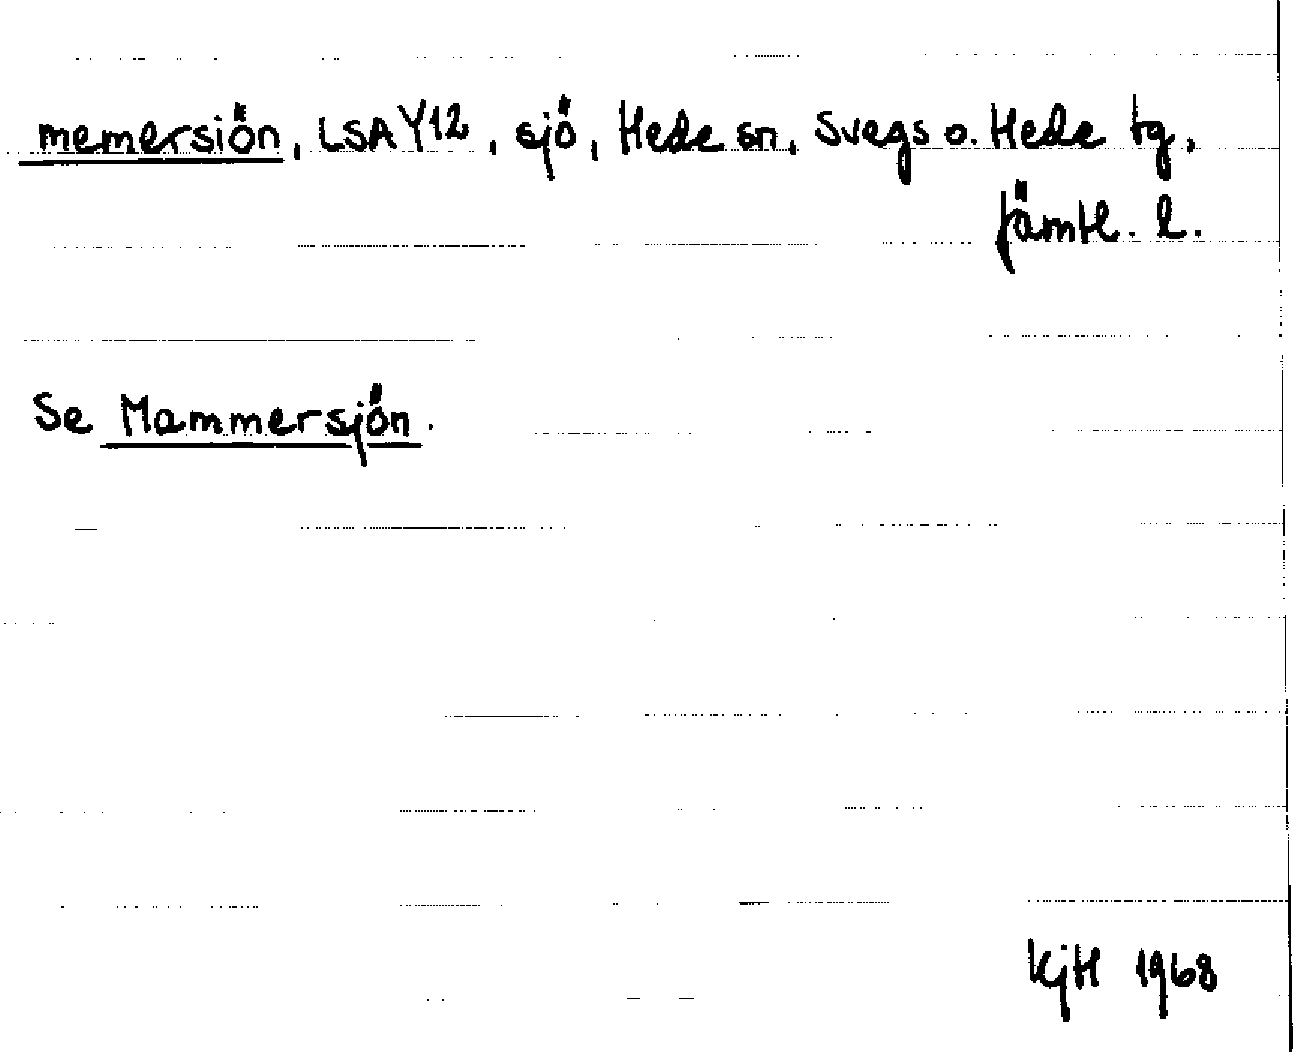 memersiön, LSA Y12, sjö, Hede sn, Svegs o. Hede tg,
Jämtl. l.
Se Mammersjön.
KjH 1968